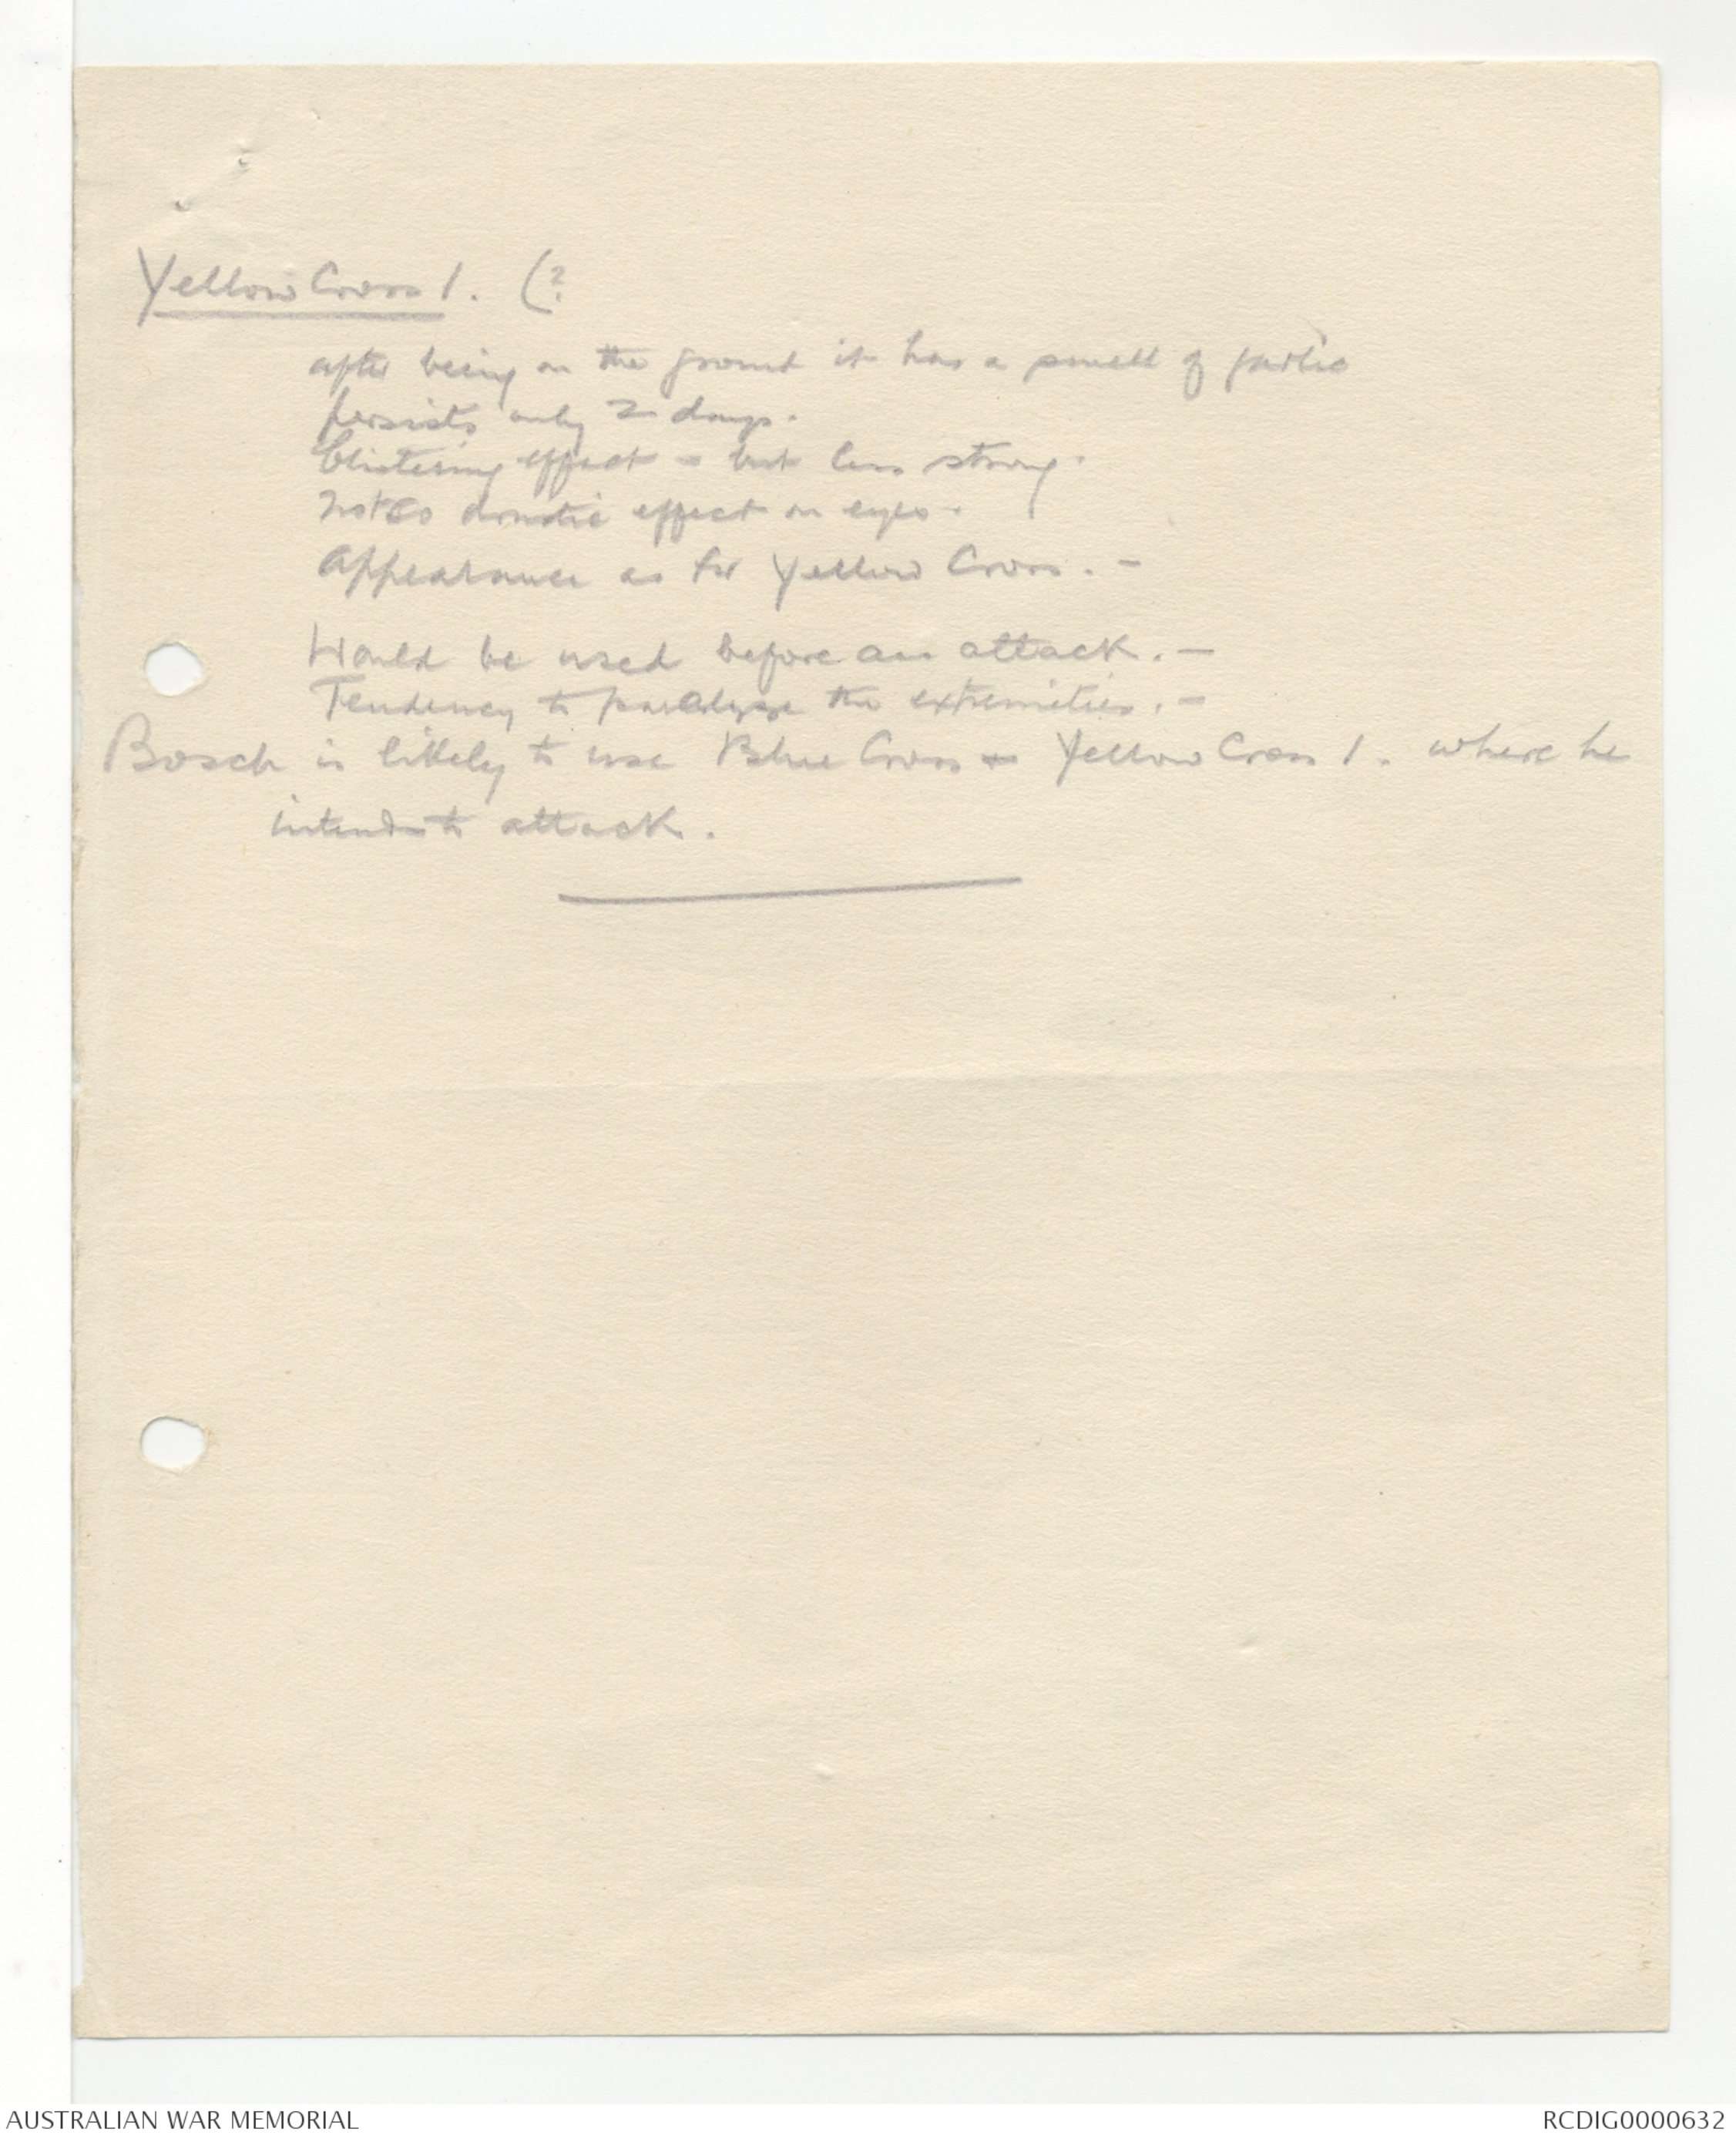 Yellow Cross 1. (?
after being on the ground it has a smell of garlic
persists only 2 days.
blistering effect - but less strong.
Not so drastic effect on eyes.
Appearance as for Yellow Cross. -
Would be used before an attack. -
Tendency to paralyse the extremities. -
Bosch is likely to use Blue Cross + Yellow Cross 1. where he
intends to attack.
AUSTRALIAN WAR MEMORIAL
RCDIG0000632